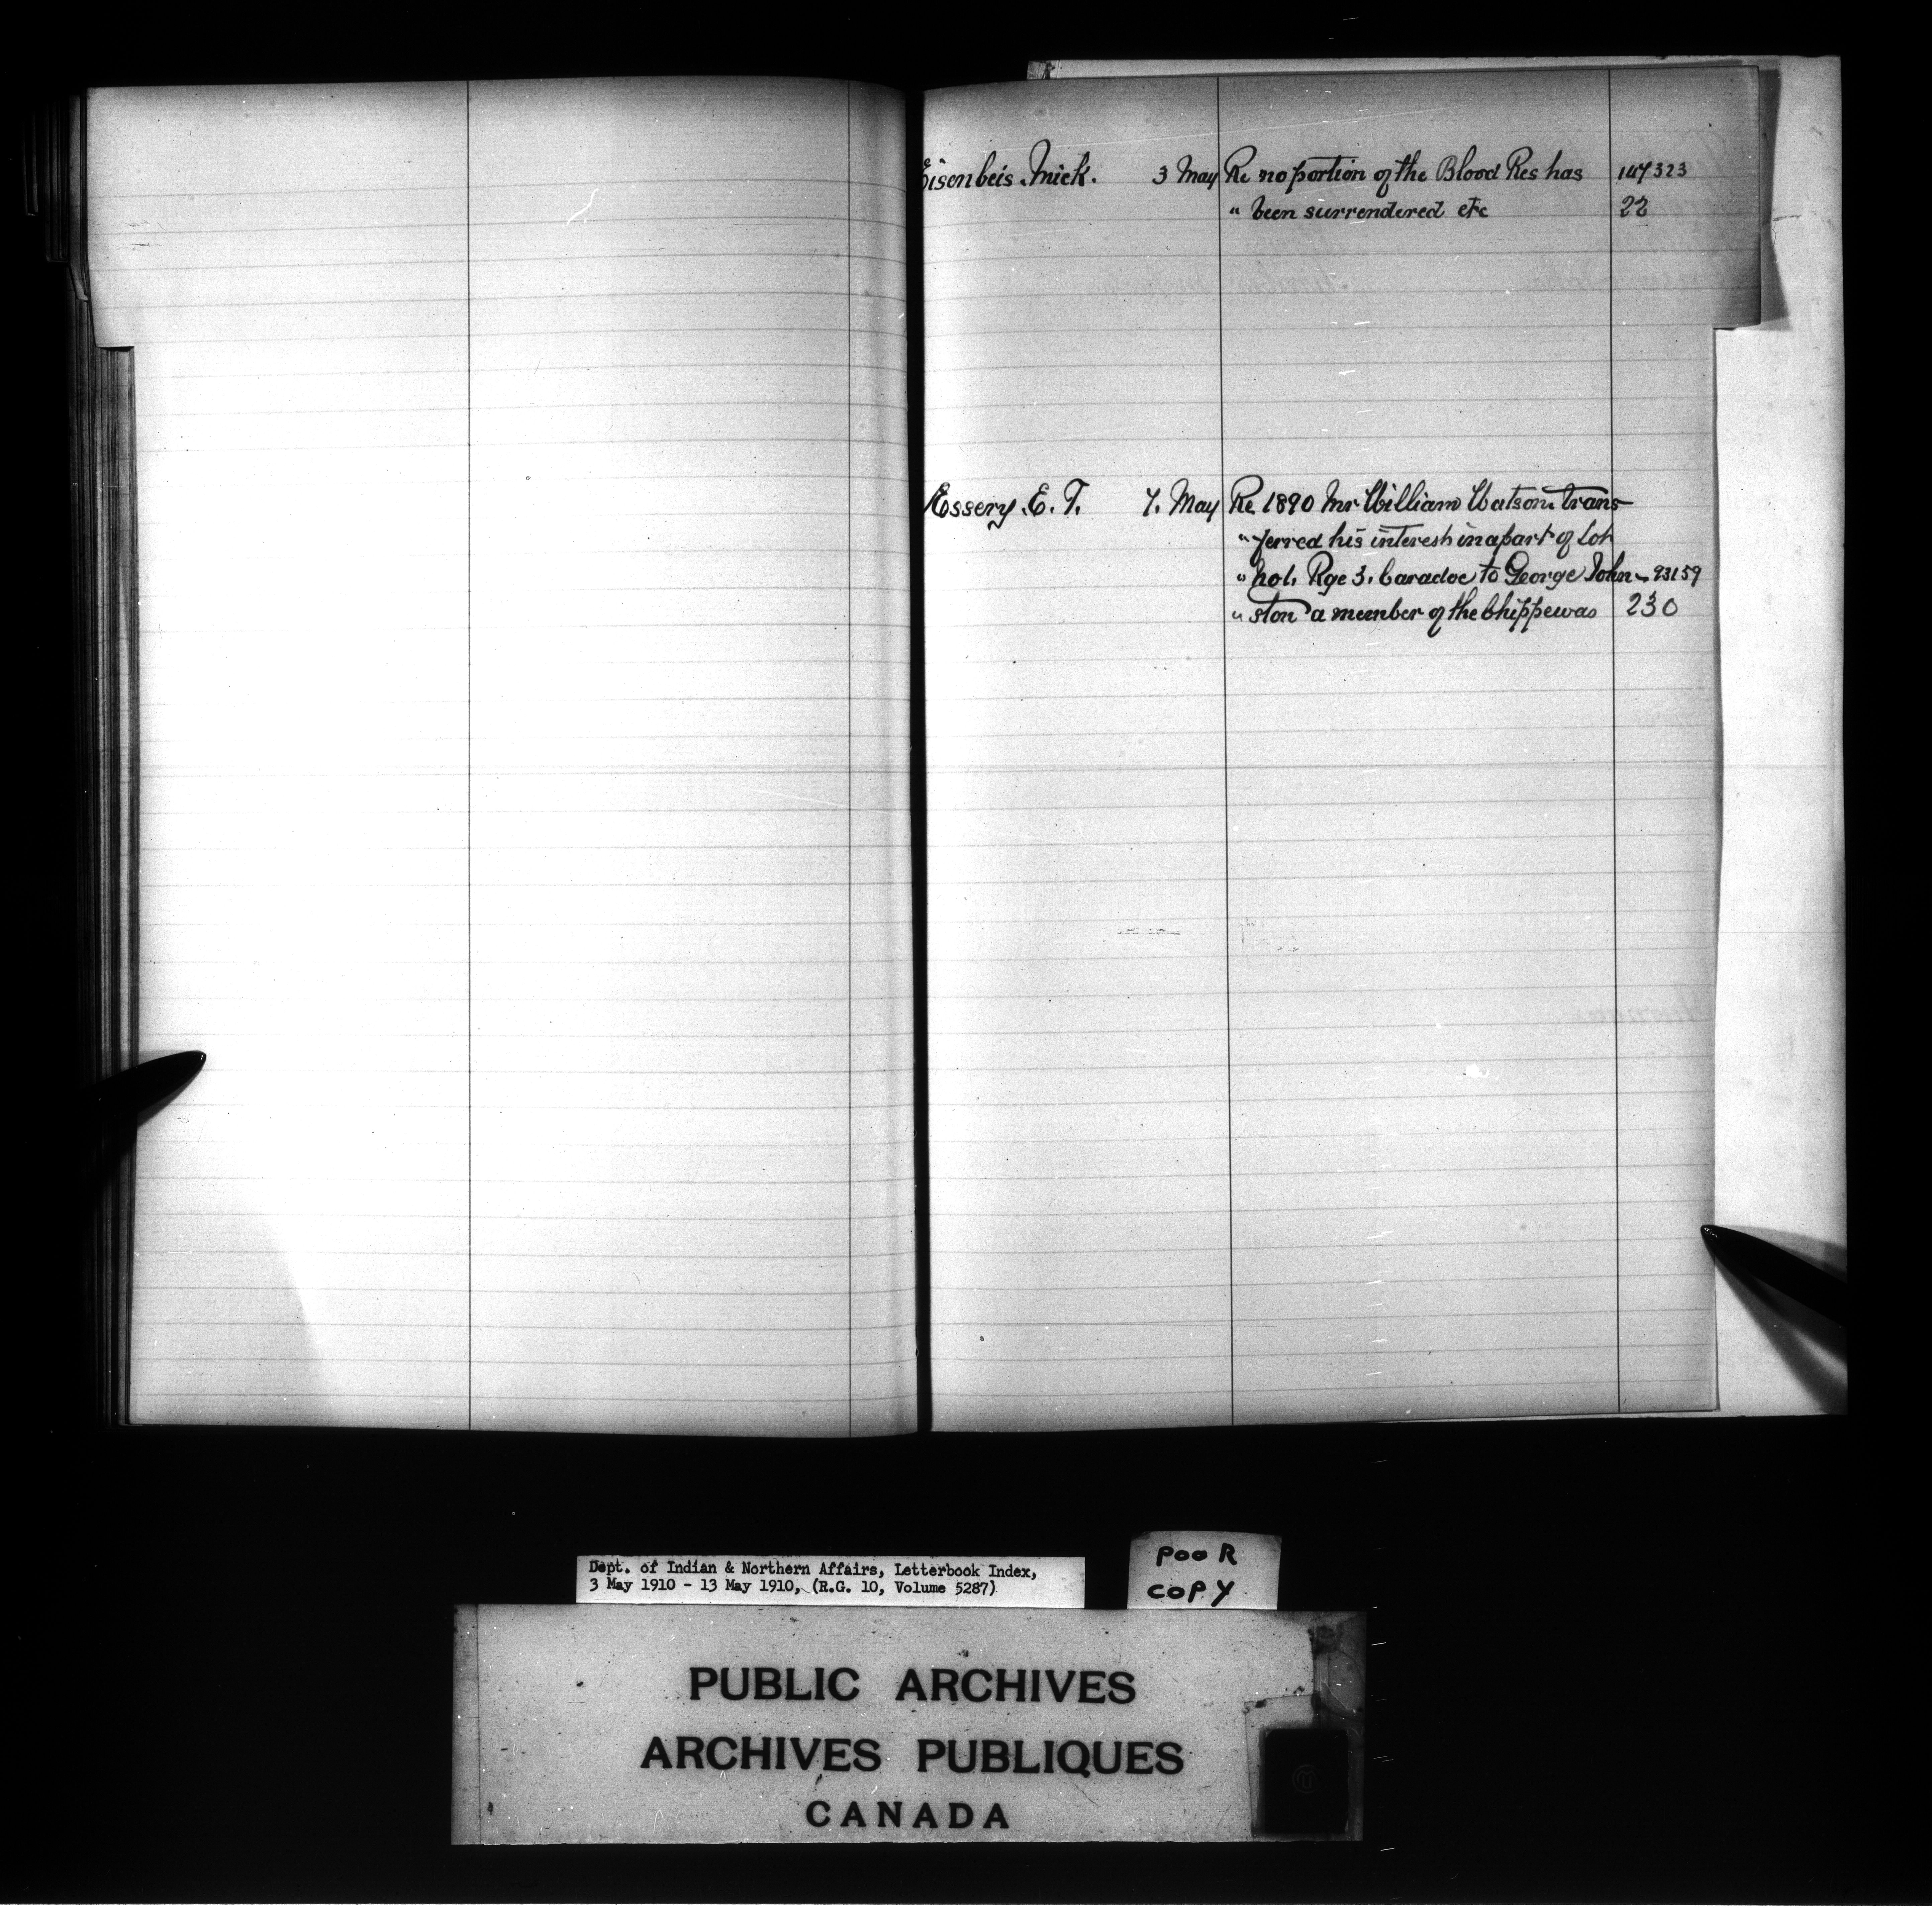 Eisenbeis. Mick. 3 May Re no portion of the Blood Res has 147323
" been surrendered etc 22
Essery. E. T. 7. May Re 1890 Mr William Watson trans-
" ferred his interest in a part of Lot
" No 1. Rge 3. Caradoc to George John- 93159
" ston a member of the Chippewas 230
Dept. of Indian & Northern Affairs, Letterbook Index,
3 May 1910 - 13 May 1910, (R.G. 10, Volume 5287)
POOR
COPY
PUBLIC ARCHIVES
ARCHIVES PUBLIQUES
CANADA